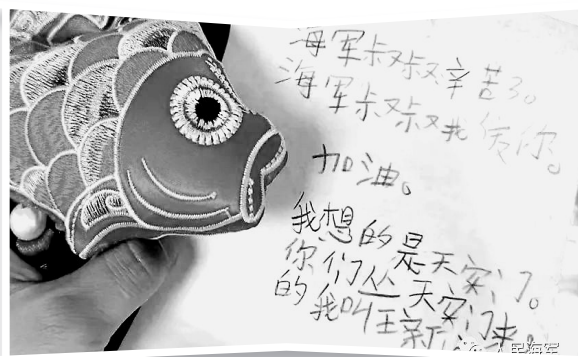 海军叔叔辛苦了。
海军叔叔我爱你。
加油。
我想的是天安门。
你们从天安门来
的我叫王新
人民海军